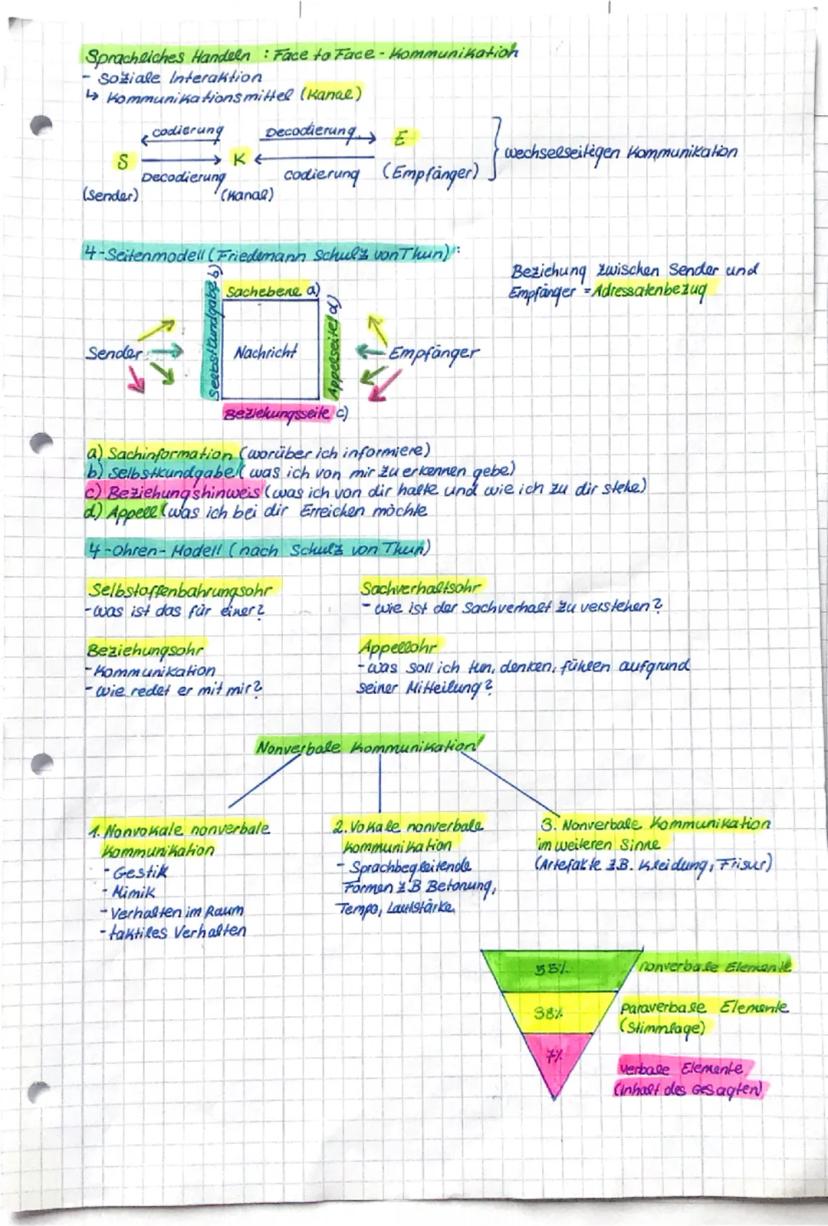 Sprachliches Handeln : Face to Face - Kommunikation
- Soziale Interaktion
↳ Kommunikationsmittel (Kanal)
codierung Decodierung
S K E
Decodierung codierung (Empfänger)
(Sender) (Kanal)
wechselseitigen Kommunikation
4-Seitenmodell (Friedemann Schulz von Thun):
Beziehung zwischen Sender und
Empfänger = Adressatenbezug
Sachebene a)
Selbstkundgabe b)
Sender
Nachricht
Appelseite d)
Empfänger
Beziehungsseite c)
a) Sachinformation (worüber ich informiere)
b) Selbstkundgabe (was ich von mir zu erkennen gebe)
c) Beziehungshinweis (was ich von dir halte und wie ich zu dir stehe)
d) Appell (was ich bei dir Erreichen möchte
4-Ohren-Modell (nach Schulz von Thun)
Selbstoffenbahrungsohr
- was ist das für einer?
Sachverhaltsohr
- wie ist der Sachverhalt zu verstehen?
Beziehungsohr
- Kommunikation
- wie redet er mit mir?
Appellohr
- was soll ich tun, denken, fühlen aufgrund
seiner Mitteilung?
Nonverbale Kommunikation
1. Nonvokale nonverbale
Kommunikation
- Gestik
- Mimik
- Verhalten im Raum
- taktiles Verhalten
2. Vokale nonverbale
Kommunikation
- Sprachbegleitende
Formen z.B Betonung,
Tempo, Lautstärke
3. Nonverbale Kommunikation
im weiteren Sinne
(Artefakte z.B. Kleidung, Frisur)
55% nonverbale Elemente
38% paraverbale Elemente
(Stimmlage)
7% verbale Elemente
(Inhalt des Gesagten)